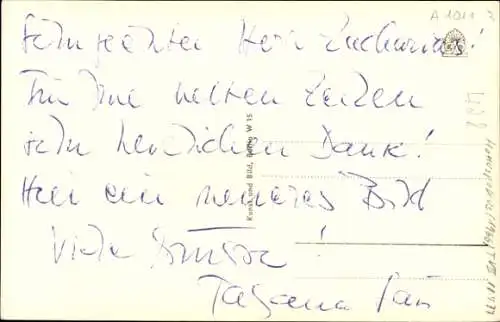 A 1011
Sehr geehrter Herr Zacharias!
Für Ihre netten Zeilen
sehr herzlichen Dank!
Hier ein neueres Bild
Viele Grüsse!
Tatjana Sais
Kunst und Bild, Berlin W 15